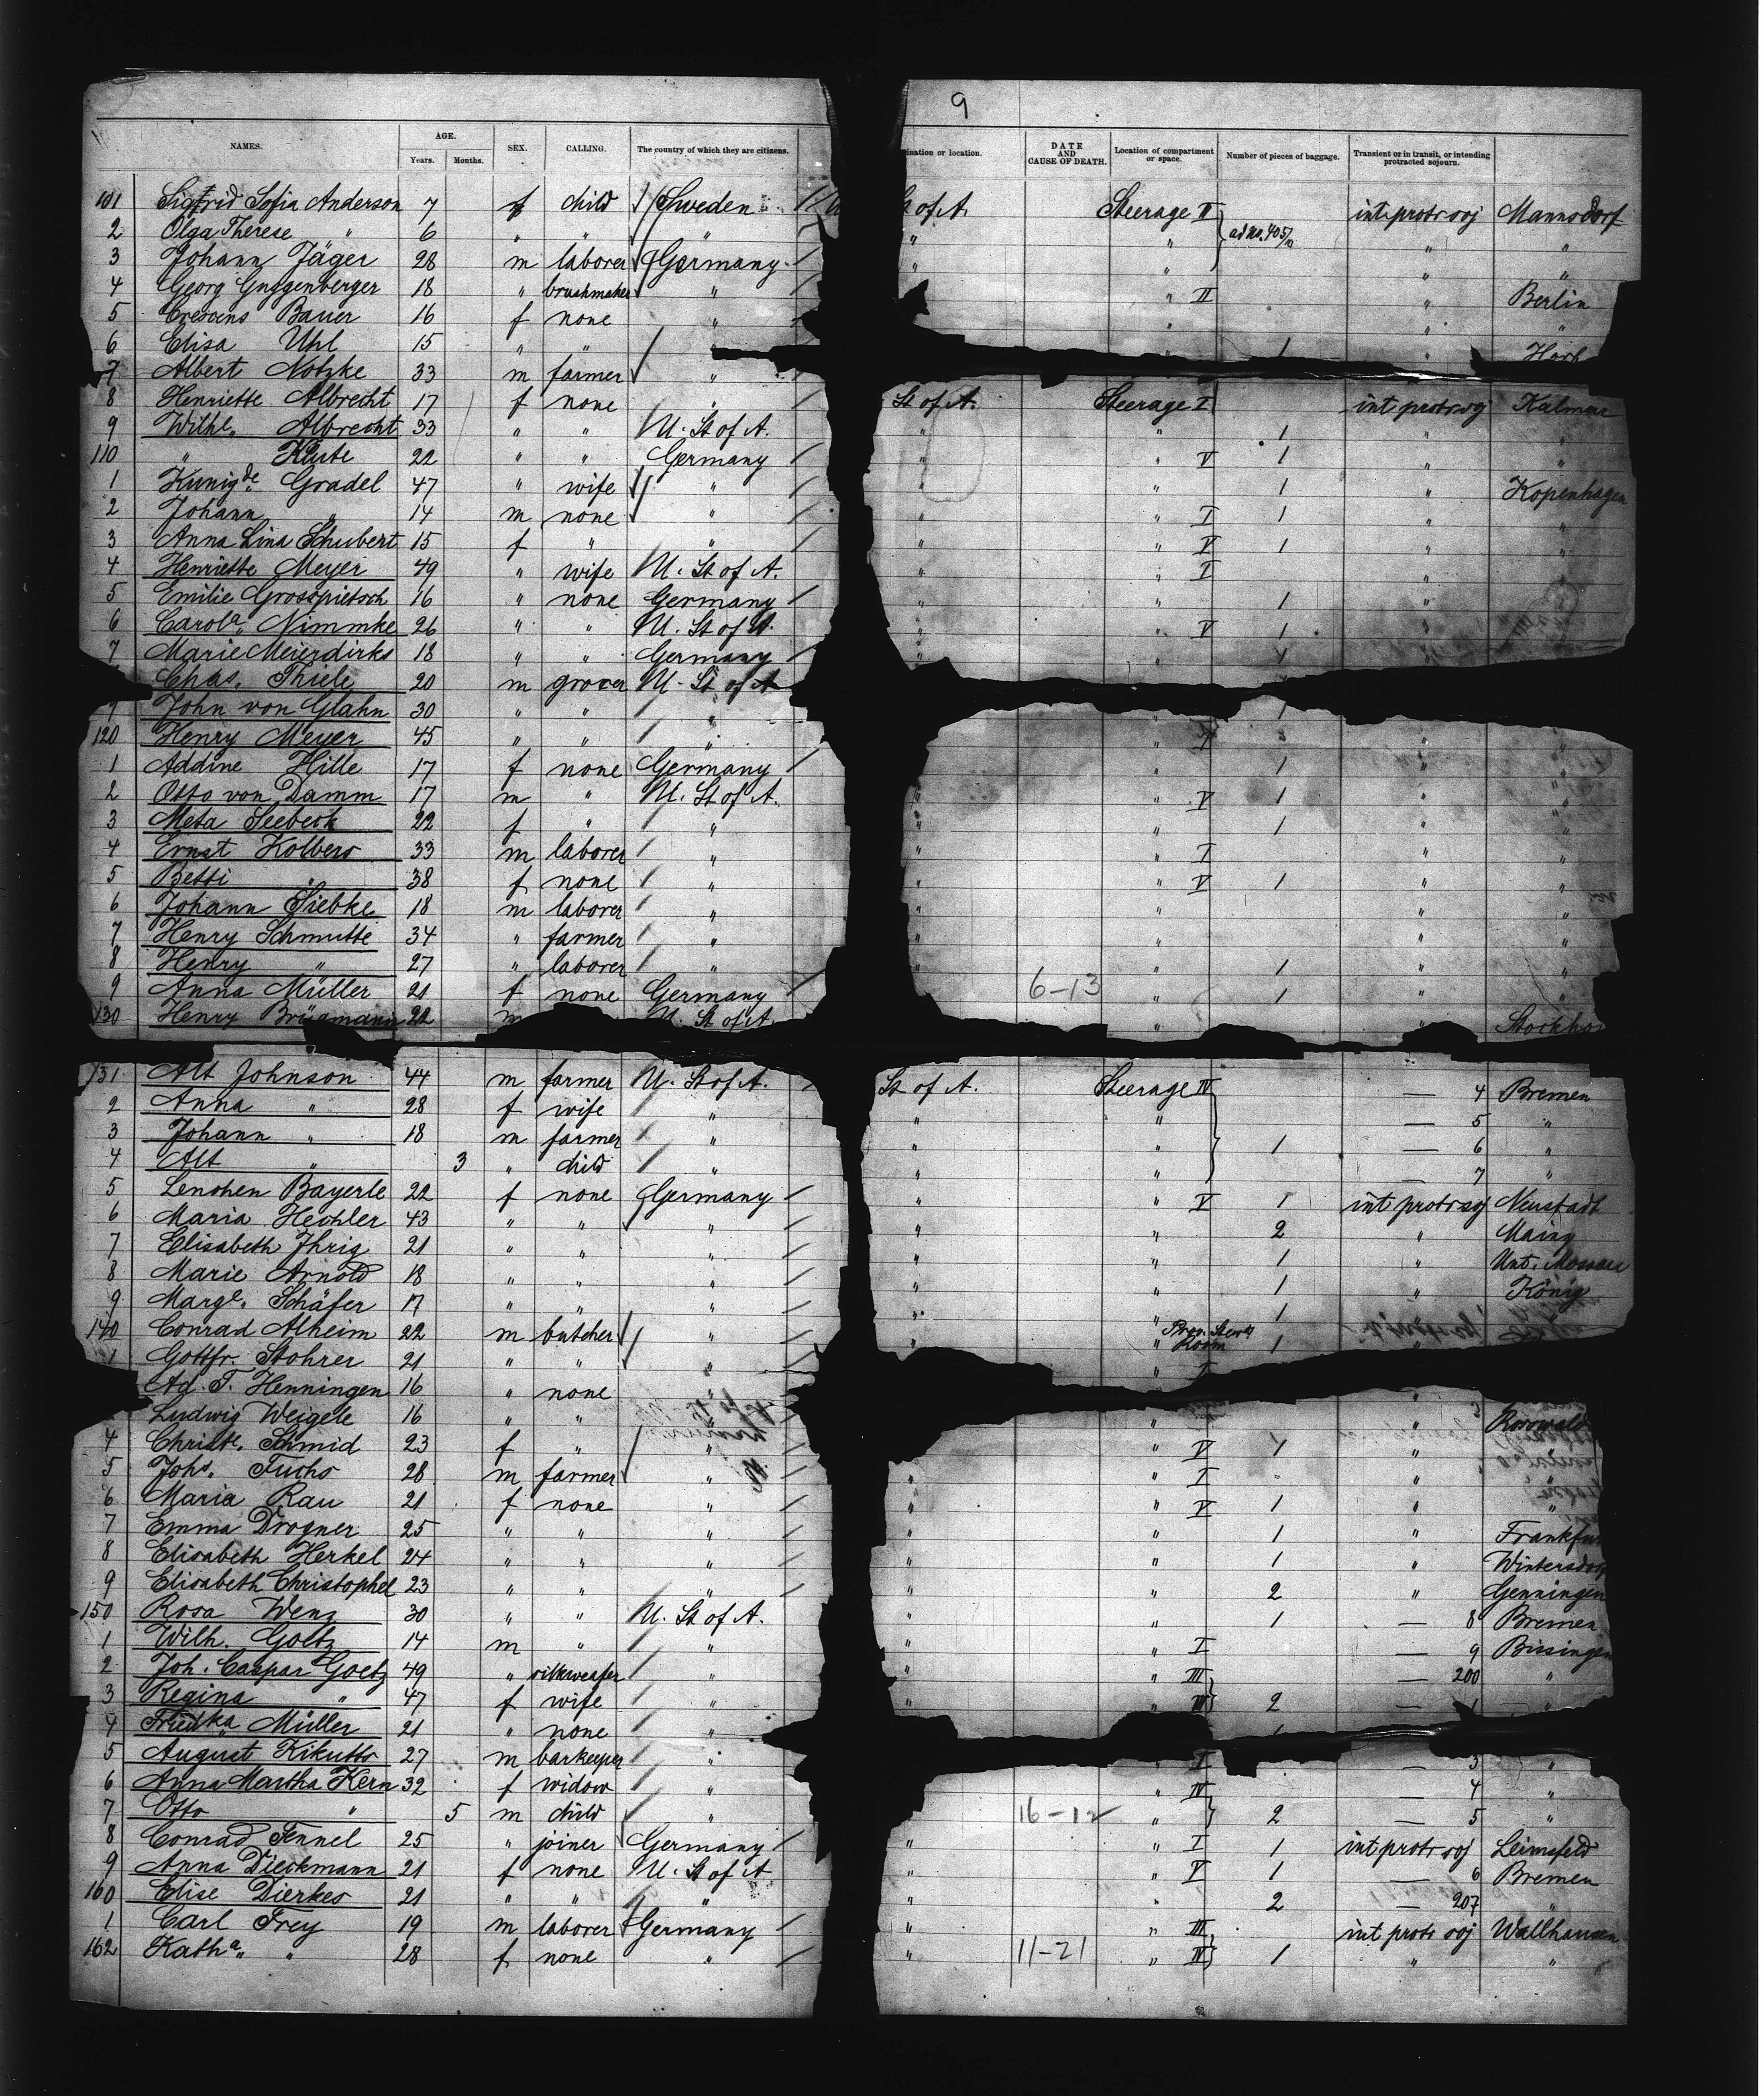 9
NAMES. AGE. Years. Months. SEX. CALLING. The country of which they are citizens.
ination or location. DATE AND CAUSE OF DEATH. Location of compartment or space. Number of pieces of baggage. Transient or in transit, or intending protracted sojourn.
101 Sigfrid Sofia Anderson 7 f child Sweden St of A. Steerage II int protr soj Mannsdorf
2 Olga Therese " 6 " " " " " " "
3 Johann Jäger 28 m laborer Germany " " " "
4 Georg Guggenberger 18 " brushmaker " " II " Berlin
5 Crescens Bauer 16 f none " " " "
6 Elisa Uhl 15 " " 1 "
7 Albert Notzke 33 m farmer "
8 Henriette Albrecht 17 f none " St of A. Steerage I int protr soj Kalmar
9 Wilhe. Albrecht 33 " " U. St of A. " " 1 " "
110 " Klute 22 " " Germany " " V 1 " "
1 Kunigde. Gradel 47 " wife " " " 1 " Kopenhagen
2 Johann " 14 m none " " " I 1 " "
3 Anna Lina Schubert 15 f " " " " V 1 " "
4 Henriette Meyer 49 " wife U. St of A. " " I " "
5 Emilie Grosspietsch 16 " none Germany " " 1 " "
6 Carola. Nimmke 26 " " U. St of A. " " V 1 "
7 Marie Meierdirks 18 " " Germany
Chas. Thiele 20 m grocer U. St of A
9 John von Glahn 30 " " "
120 Henry Meyer 45 " " " " I " "
1 Addine Hille 17 f none Germany " 1 " "
2 Otto von Damm 17 m " U. St of A. " " V 1 " "
3 Meta Seebeck 22 f " " " " 1 " "
4 Ernst Kolbers 33 m laborer " " " I " "
5 Betti " 38 f none " " " V 1 " "
6 Johann Siebke 18 m laborer " " " " "
7 Henry Schmutte 34 " farmer " " " " "
8 Henry " 27 " laborer " " " 1 " "
9 Anna Müller 21 f none Germany " 6-13 " 1 " "
130 Henry Brügmann 22 m U. St of A. " "
131 Alt Johnson 44 m farmer U. St of A. St of A. Steerage IV — 4 Bremen
2 Anna " 28 f wife " " " — 5 "
3 Johann " 18 m farmer " " 1 — 6 "
4 Alt " 3 " child " " — 7 "
5 Lenchen Bayerle 22 f none Germany " " V 1 int protr soj Neustadt
6 Maria Hechler 43 " " " " " 2 " Mainz
7 Elisabeth Ihrig 21 " " " " " 1 "
8 Marie Arnold 18 " " " " " 1 " König
9 Marge. Schäfer 17 " " " " " 1
140 Conrad Alheim 22 m butcher " " " Room 1
1 Gottfr. Stohrer 21 " " " I
Ad. T. Henningen 16 " none "
Ludwig Weigele 16 " " " " "
4 Christe. Schmid 23 f " " " " V 1 " "
5 Johs. Fuchs 28 m farmer " " " I " "
6 Maria Rau 21 f none " " " V 1 " "
7 Emma Drogner 25 " " " " " 1 "
8 Elisabeth Herkel 24 " " " " " 1 "
9 Elisabeth Christophel 23 " " " " " 2 " Genningen
150 Rosa Wenz 30 " " U. St of A. " " 1 — 8 Bremen
1 Wilh. Goltz 14 m " " " " I — 9 Bissingen
2 Joh. Caspar Goetz 49 " silkweafer " " " III — 200 "
3 Regina " 47 f wife " " " III 2 — 1 "
4 Friedka Müller 21 " none "
5 August Kikutts 27 m barkeeper " " I — 3 "
6 Anna Martha Kern 32 f widow " " IV — 4 "
7 Otto " 5 m child " 16-12 " 2 — 5 "
8 Conrad Fennel 25 " joiner Germany " " I 1 int protr soj Leimsfeld
9 Anna Dieckmann 21 f none U. St of A " " V 1 — 6 Bremen
160 Elise Dierkes 21 " " " " " 2 — 207 "
1 Carl Frey 19 m laborer Germany " " III int protr soj Wallhausen
162 Katha. " 28 f none " " 11-21 " IV 1 " "